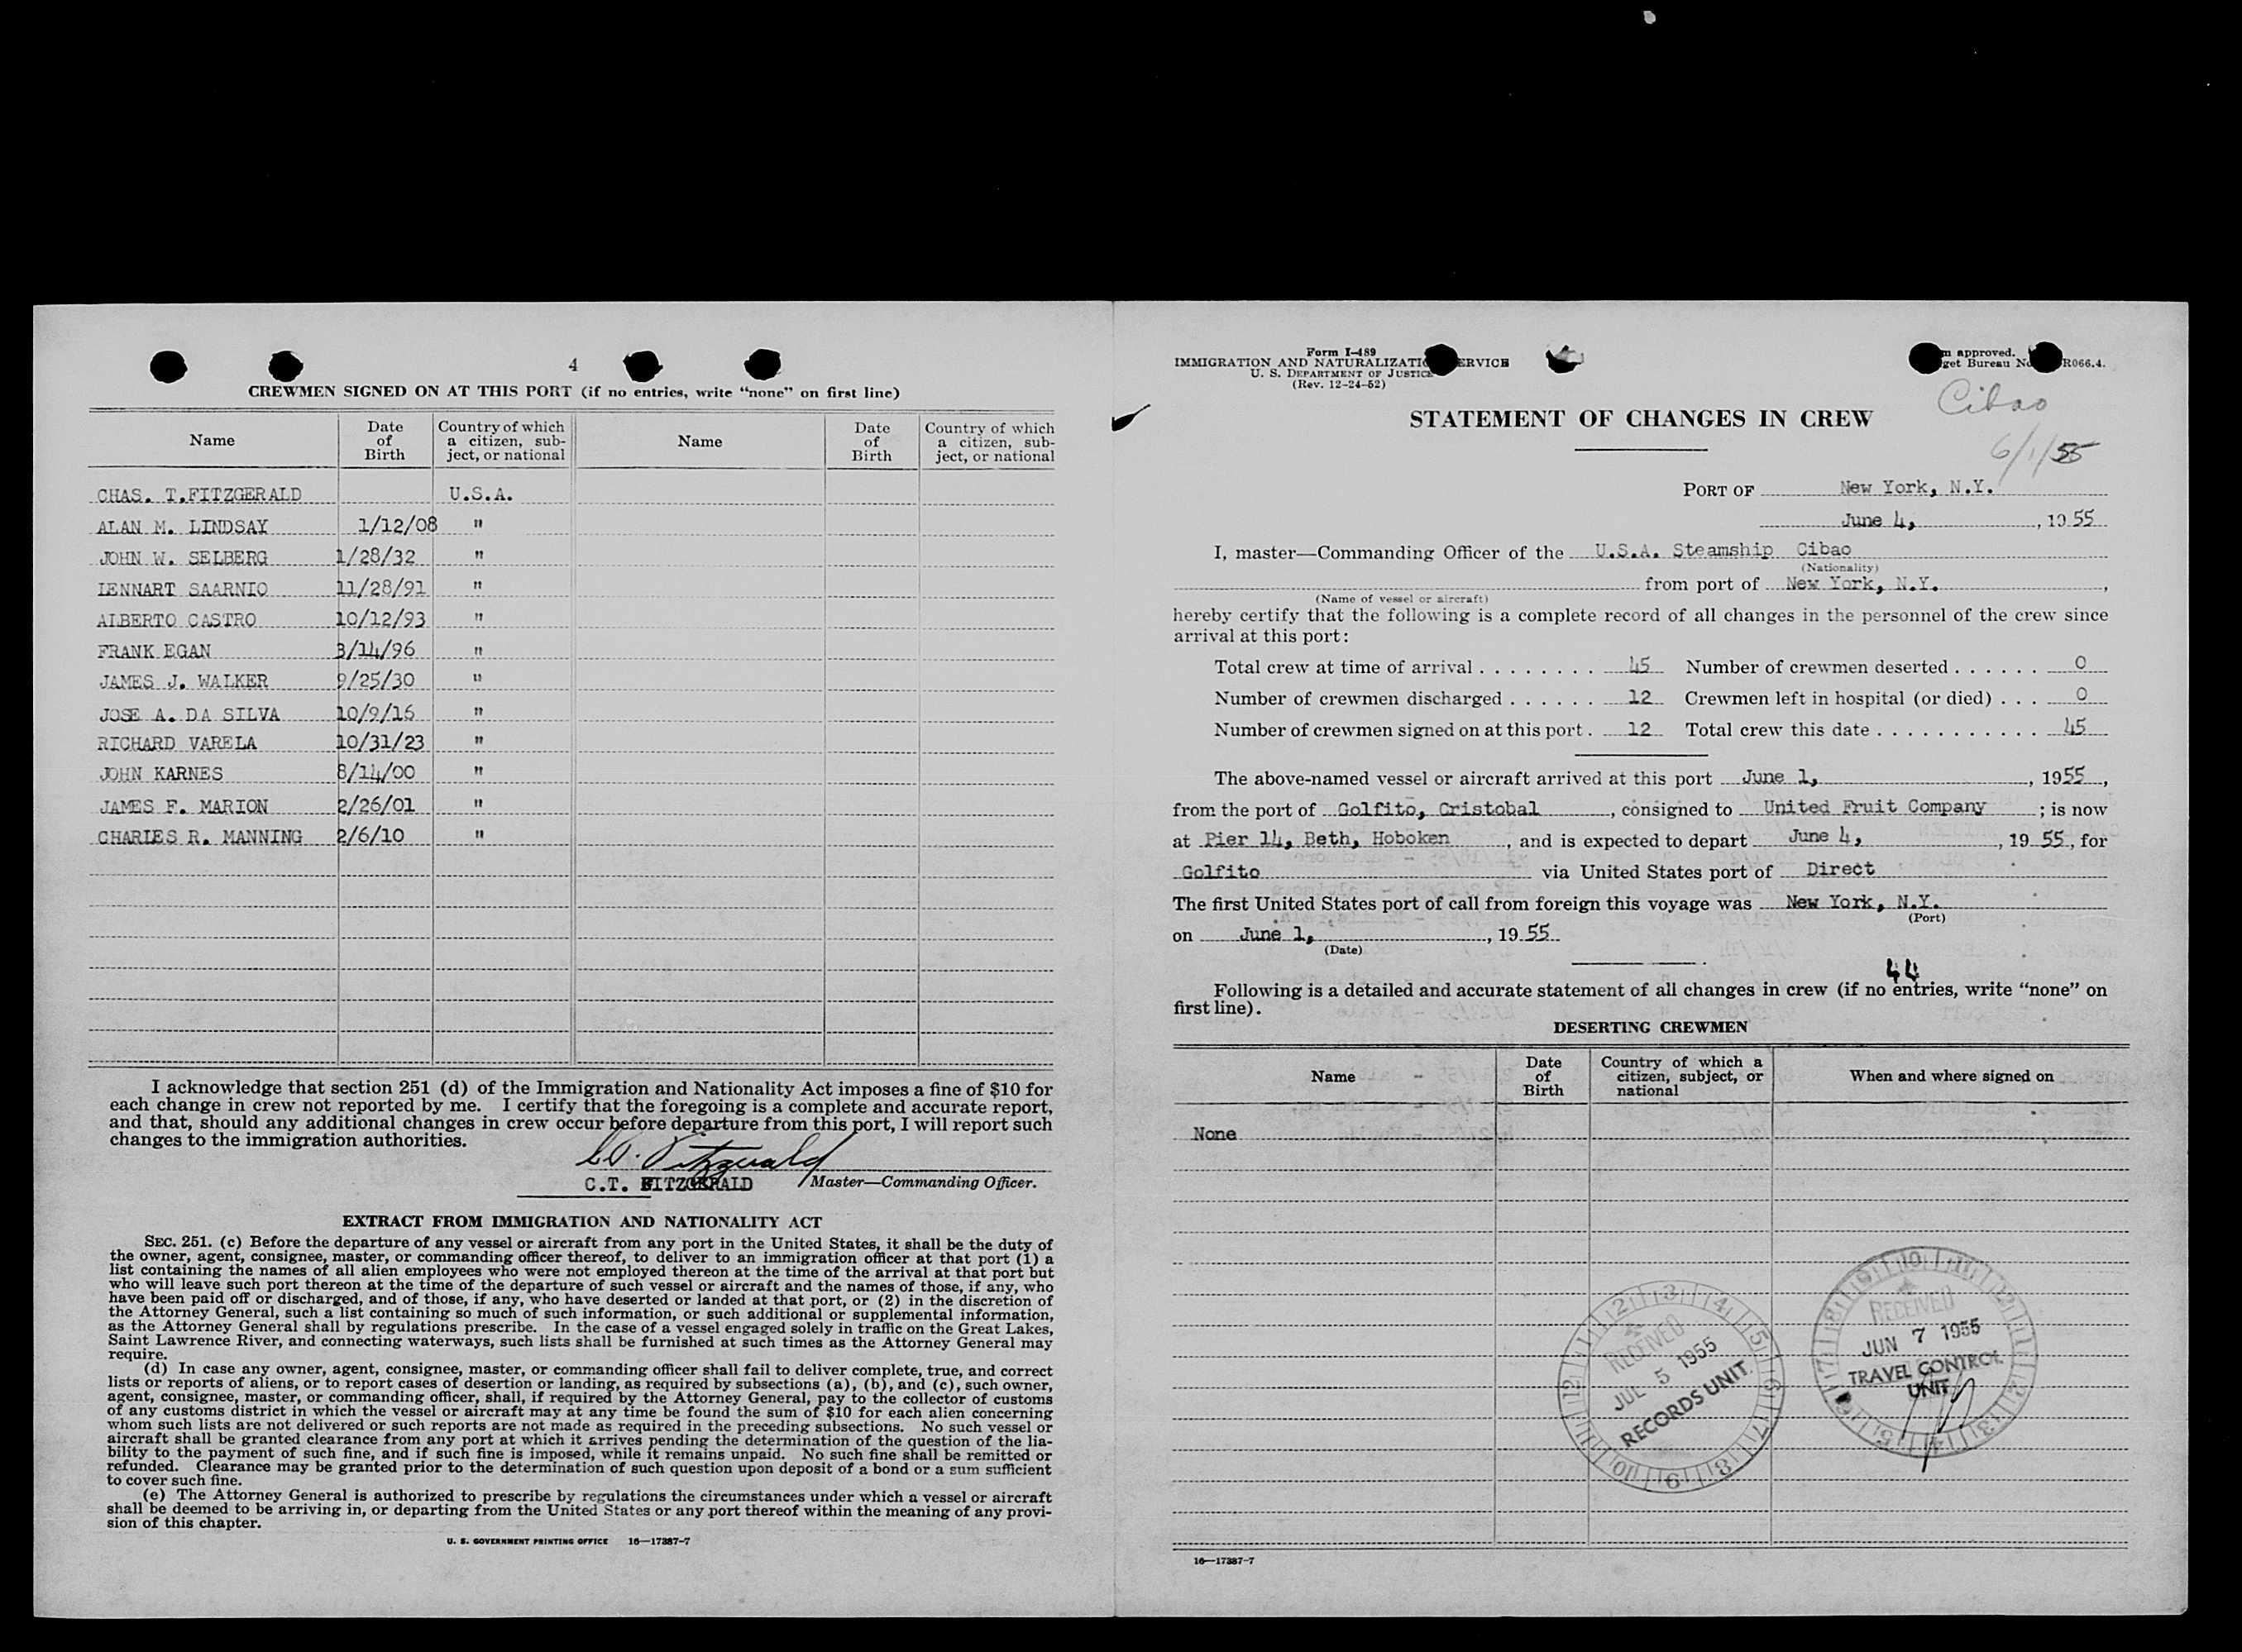 4
CREWMEN SIGNED ON AT THIS PORT (if no entries, write “none” on first line)
Name Date of Birth Country of which a citizen, sub-ject, or national Name Date of Birth Country of which a citizen, sub-ject, or national
CHAS. T.FITZGERALD U.S.A.
ALAN M. LINDSAY 1/12/08 "
JOHN W. SELBERG 1/28/32 "
LENNART SAARNIO 11/28/91 "
ALBERTO CASTRO 10/12/93 "
FRANK EGAN 3/14/96 "
JAMES J. WALKER 9/25/30 "
JOSE A. DA SILVA 10/9/16 "
RICHARD VARELA 10/31/23 "
JOHN KARNES 8/14/00 "
JAMES F. MARION 2/26/01 "
CHARLES R. MANNING 2/6/10 "
I acknowledge that section 251 (d) of the Immigration and Nationality Act imposes a fine of $10 for
each change in crew not reported by me. I certify that the foregoing is a complete and accurate report,
and that, should any additional changes in crew occur before departure from this port, I will report such
changes to the immigration authorities.
C.T. Fitzgerald
C.T. FITZGERALD Master—Commanding Officer.
EXTRACT FROM IMMIGRATION AND NATIONALITY ACT
SEC. 251. (c) Before the departure of any vessel or aircraft from any port in the United States, it shall be the duty of
the owner, agent, consignee, master, or commanding officer thereof, to deliver to an immigration officer at that port (1) a
list containing the names of all alien employees who were not employed thereon at the time of the arrival at that port but
who will leave such port thereon at the time of the departure of such vessel or aircraft and the names of those, if any, who
have been paid off or discharged, and of those, if any, who have deserted or landed at that port, or (2) in the discretion of
the Attorney General, such a list containing so much of such information, or such additional or supplemental information,
as the Attorney General shall by regulations prescribe. In the case of a vessel engaged solely in traffic on the Great Lakes,
Saint Lawrence River, and connecting waterways, such lists shall be furnished at such times as the Attorney General may
require.
(d) In case any owner, agent, consignee, master, or commanding officer shall fail to deliver complete, true, and correct
lists or reports of aliens, or to report cases of desertion or landing, as required by subsections (a), (b), and (c), such owner,
agent, consignee, master, or commanding officer, shall, if required by the Attorney General, pay to the collector of customs
of any customs district in which the vessel or aircraft may at any time be found the sum of $10 for each alien concerning
whom such lists are not delivered or such reports are not made as required in the preceding subsections. No such vessel or
aircraft shall be granted clearance from any port at which it arrives pending the determination of the question of the lia-
bility to the payment of such fine, and if such fine is imposed, while it remains unpaid. No such fine shall be remitted or
refunded. Clearance may be granted prior to the determination of such question upon deposit of a bond or a sum sufficient
to cover such fine.
(e) The Attorney General is authorized to prescribe by regulations the circumstances under which a vessel or aircraft
shall be deemed to be arriving in, or departing from the United States or any port thereof within the meaning of any provi-
sion of this chapter.
U. S. GOVERNMENT PRINTING OFFICE 16—17387-7
Form I-489
IMMIGRATION AND NATURALIZATION SERVICE
U. S. DEPARTMENT OF JUSTICE
(Rev. 12-24-52)
approved.
Bureau No. R066.4.
Cibao
6/1/55
STATEMENT OF CHANGES IN CREW
PORT OF New York, N.Y.
June 4, , 1955
I, master—Commanding Officer of the U.S.A. Steamship Cibao
(Nationality)
from port of New York, N.Y. ,
(Name of vessel or aircraft)
hereby certify that the following is a complete record of all changes in the personnel of the crew since
arrival at this port:
Total crew at time of arrival . . . . . . . . 45 Number of crewmen deserted . . . . . . 0
Number of crewmen discharged . . . . . . 12 Crewmen left in hospital (or died) . . . 0
Number of crewmen signed on at this port . 12 Total crew this date . . . . . . . . . . . 45
The above-named vessel or aircraft arrived at this port June 1, , 1955 ,
from the port of Golfito, Cristobal , consigned to United Fruit Company ; is now
at Pier 14, Beth, Hoboken , and is expected to depart June 4, , 19 55 , for
Golfito via United States port of Direct
The first United States port of call from foreign this voyage was New York, N.Y.
(Port)
on June 1, , 19 55
(Date)
44
Following is a detailed and accurate statement of all changes in crew (if no entries, write “none” on
first line).
DESERTING CREWMEN
Name Date of Birth Country of which a citizen, subject, or national When and where signed on
None
RECEIVED
JUL 5 1955
RECORDS UNIT
RECEIVED
JUN 7 1955
TRAVEL CONTROL
UNIT
16—17387-7